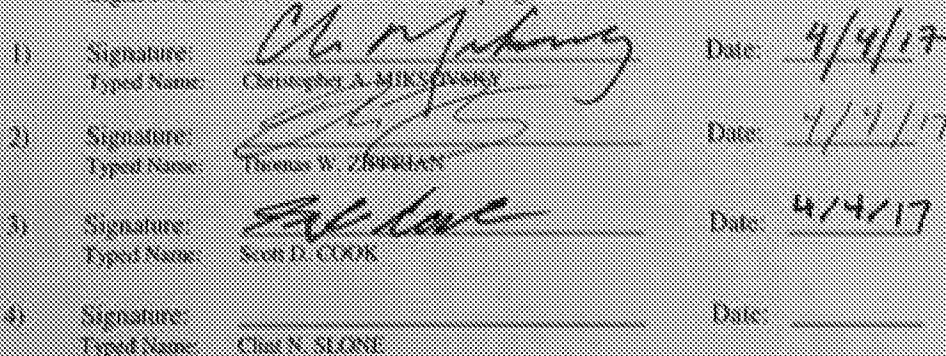 1) Signature: Date: 4/4/17
Typed Name: Christopher A. MIKSOVSKY
2) Signature: Date: 4/4/17
Typed Name: Thomas W. ZETTRIAN
3) Signature: Date: 4/4/17
Typed Name: Scott D. COOK
4) Signature: Date:
Typed Name: Clint N. SLONE